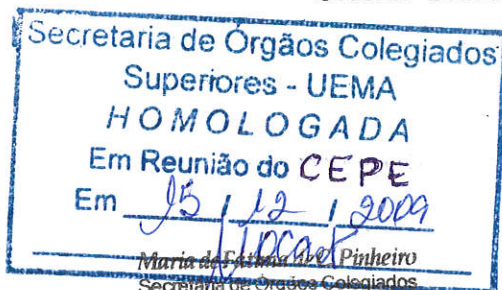 Secretaria de Órgãos Colegiados
Superiores - UEMA
HOMOLOGADA
Em Reunião do CEPE
Em 15 / 12 / 2009
Maria de Fátima Pinheiro
Secretaria de Órgãos Colegiados